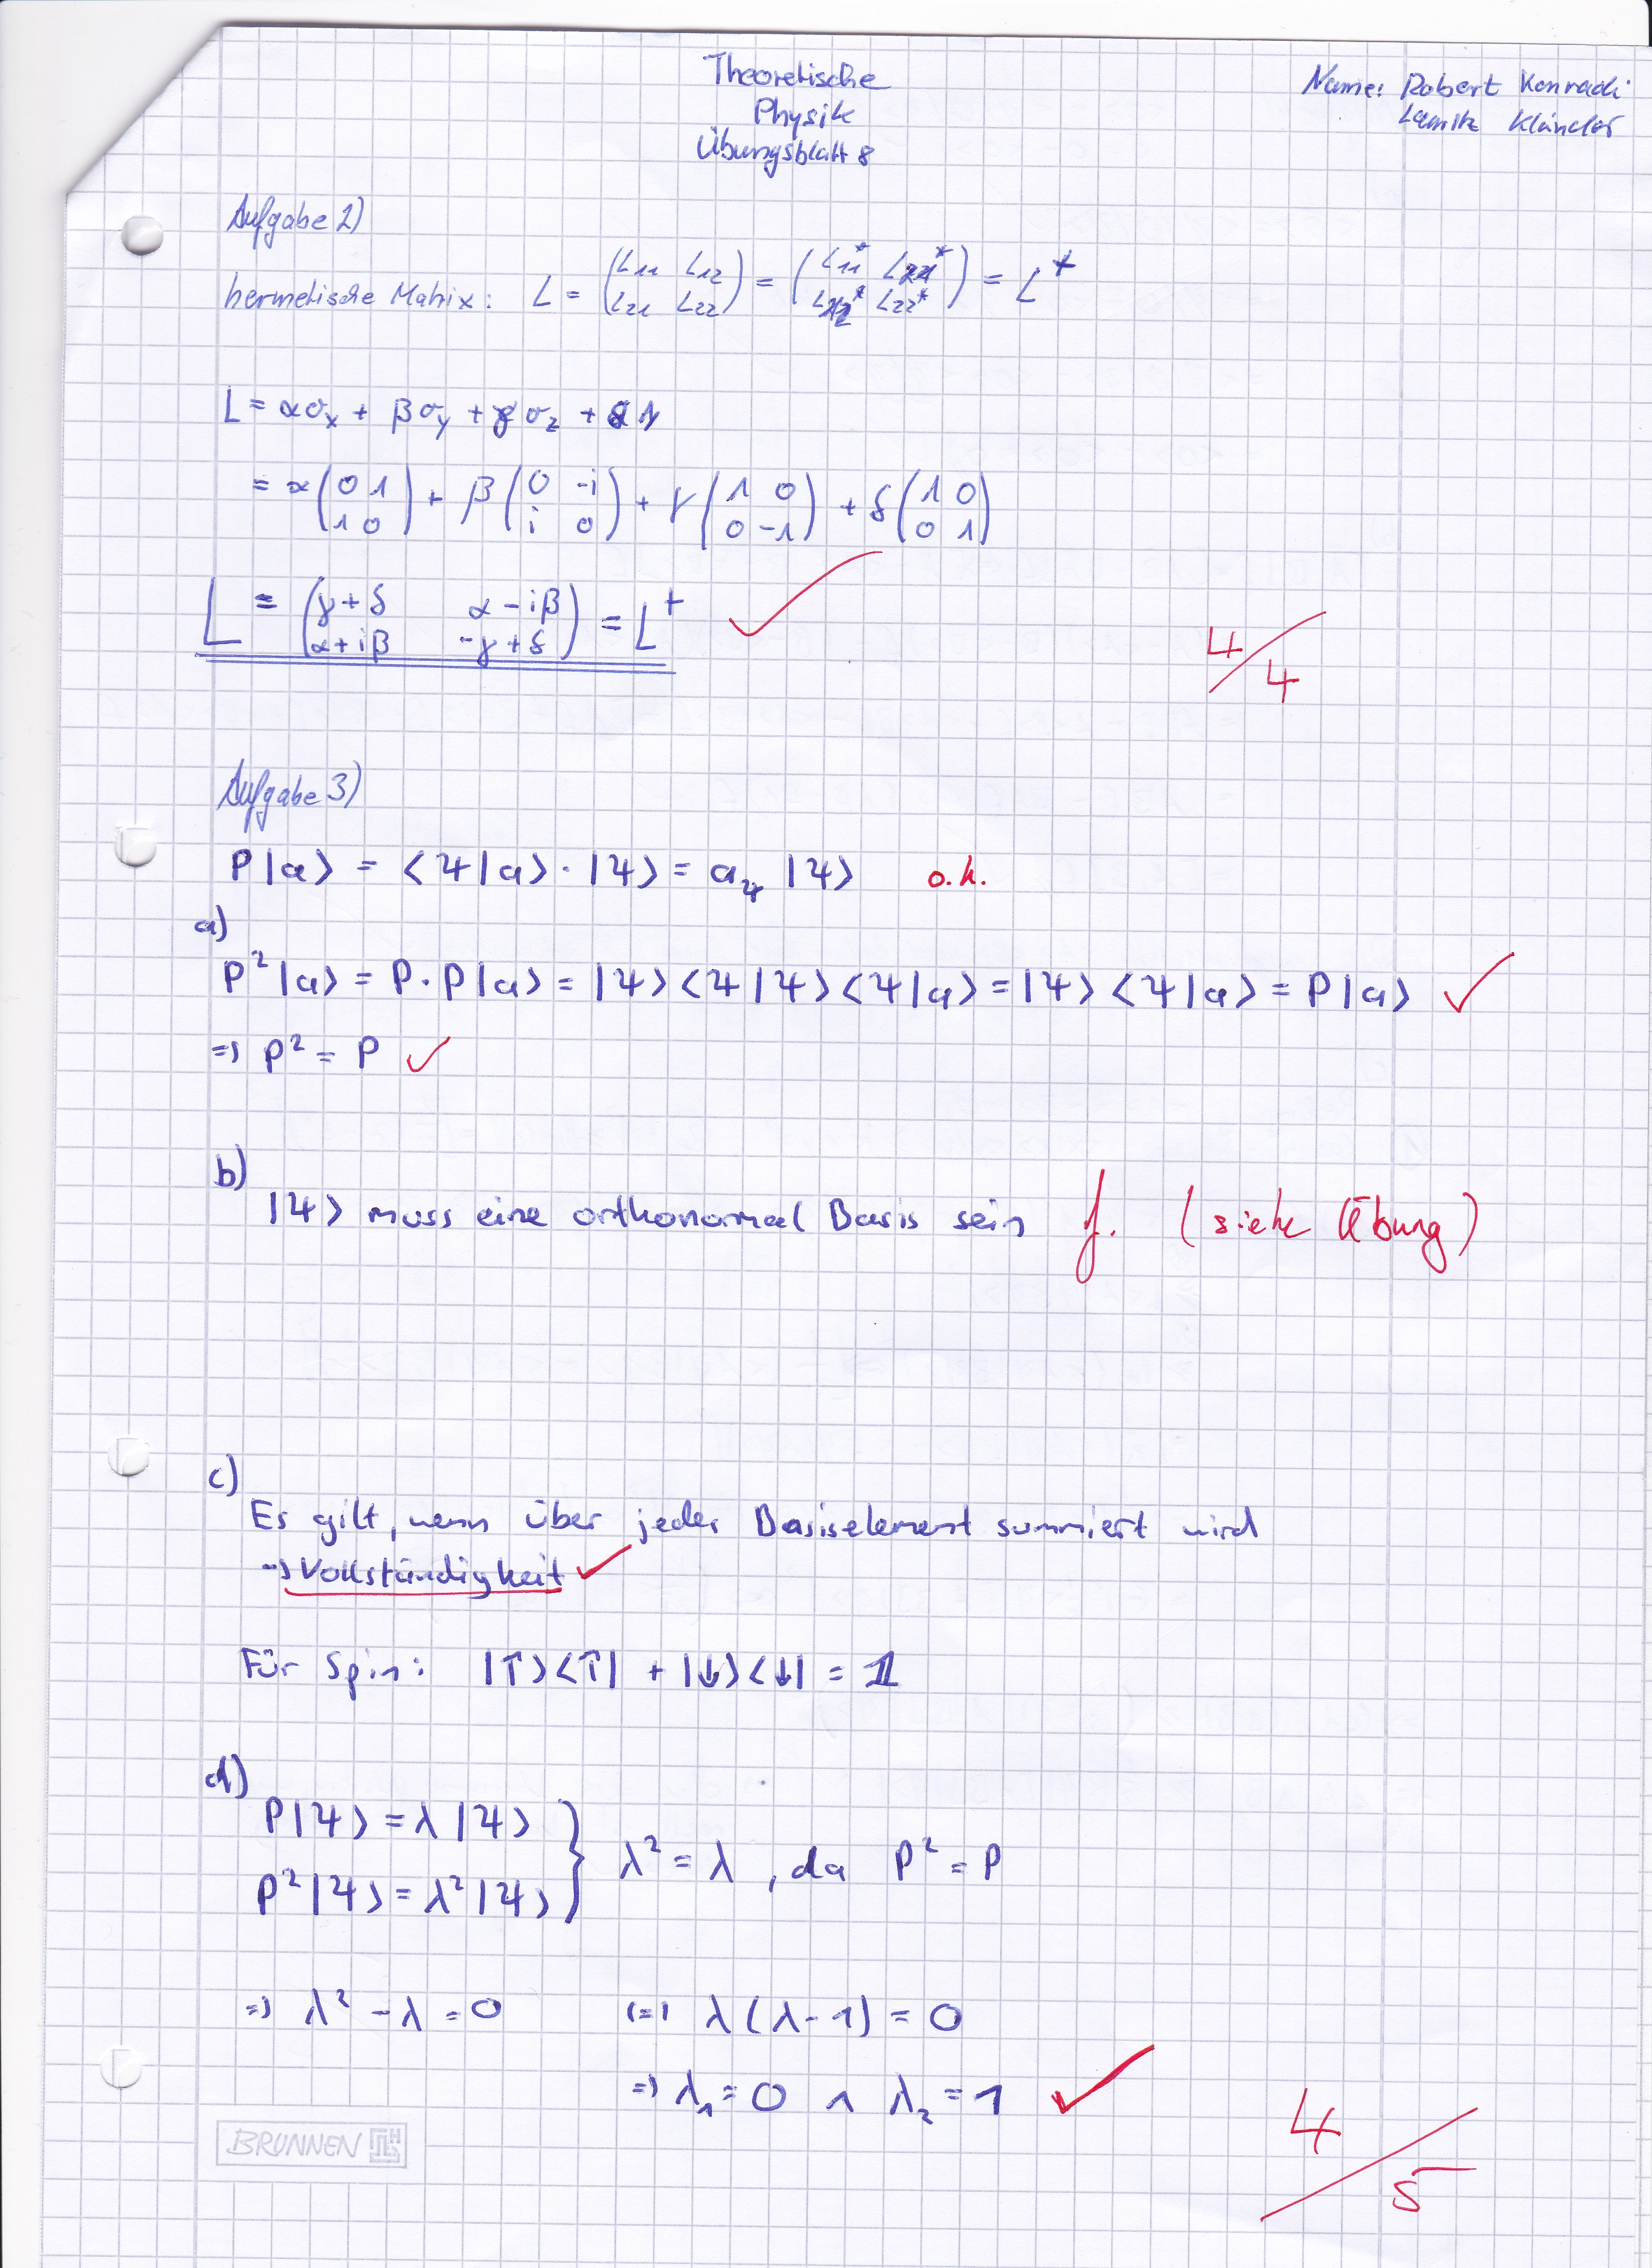 Theoretische
Physik
Übungsblatt 8
Name: Robert Konradi
Aufgabe 2)
hermetische Matrix: L = (L₁₁ L₁₂ ; L₂₁ L₂₂) = (L₁₁* L₂₁* ; L₁₂* L₂₂*) = L⁺
L = ασₓ + βσ_y + γσ_z + δ1
= α(0 1 ; 1 0) + β(0 -i ; i 0) + γ(1 0 ; 0 -1) + δ(1 0 ; 0 1)
L = (γ+δ α-iβ ; α+iβ -γ+δ) = L⁺ ✓
4/4
Aufgabe 3)
P|a⟩ = ⟨Ψ|a⟩·|Ψ⟩ = a_Ψ |Ψ⟩ o.k.
a)
P²|a⟩ = P·P|a⟩ = |Ψ⟩⟨Ψ|Ψ⟩⟨Ψ|a⟩ = |Ψ⟩⟨Ψ|a⟩ = P|a⟩ ✓
=> P² = P ✓
b)
|Ψ⟩ muss eine orthonormal Basis sein f. (siehe Übung)
c)
Es gilt, wenn über jedes Basiselement summiert wird
-> Vollständigkeit ✓
Für Spin: |↑⟩⟨↑| + |↓⟩⟨↓| = 𝟙
d)
P|Ψ⟩ = λ|Ψ⟩
P²|Ψ⟩ = λ²|Ψ⟩ } λ² = λ, da P² = P
=> λ² - λ = 0 (=) λ(λ-1) = 0
=> λ₁ = 0 ∧ λ₂ = 1 ✓
4/5
BRUNNEN